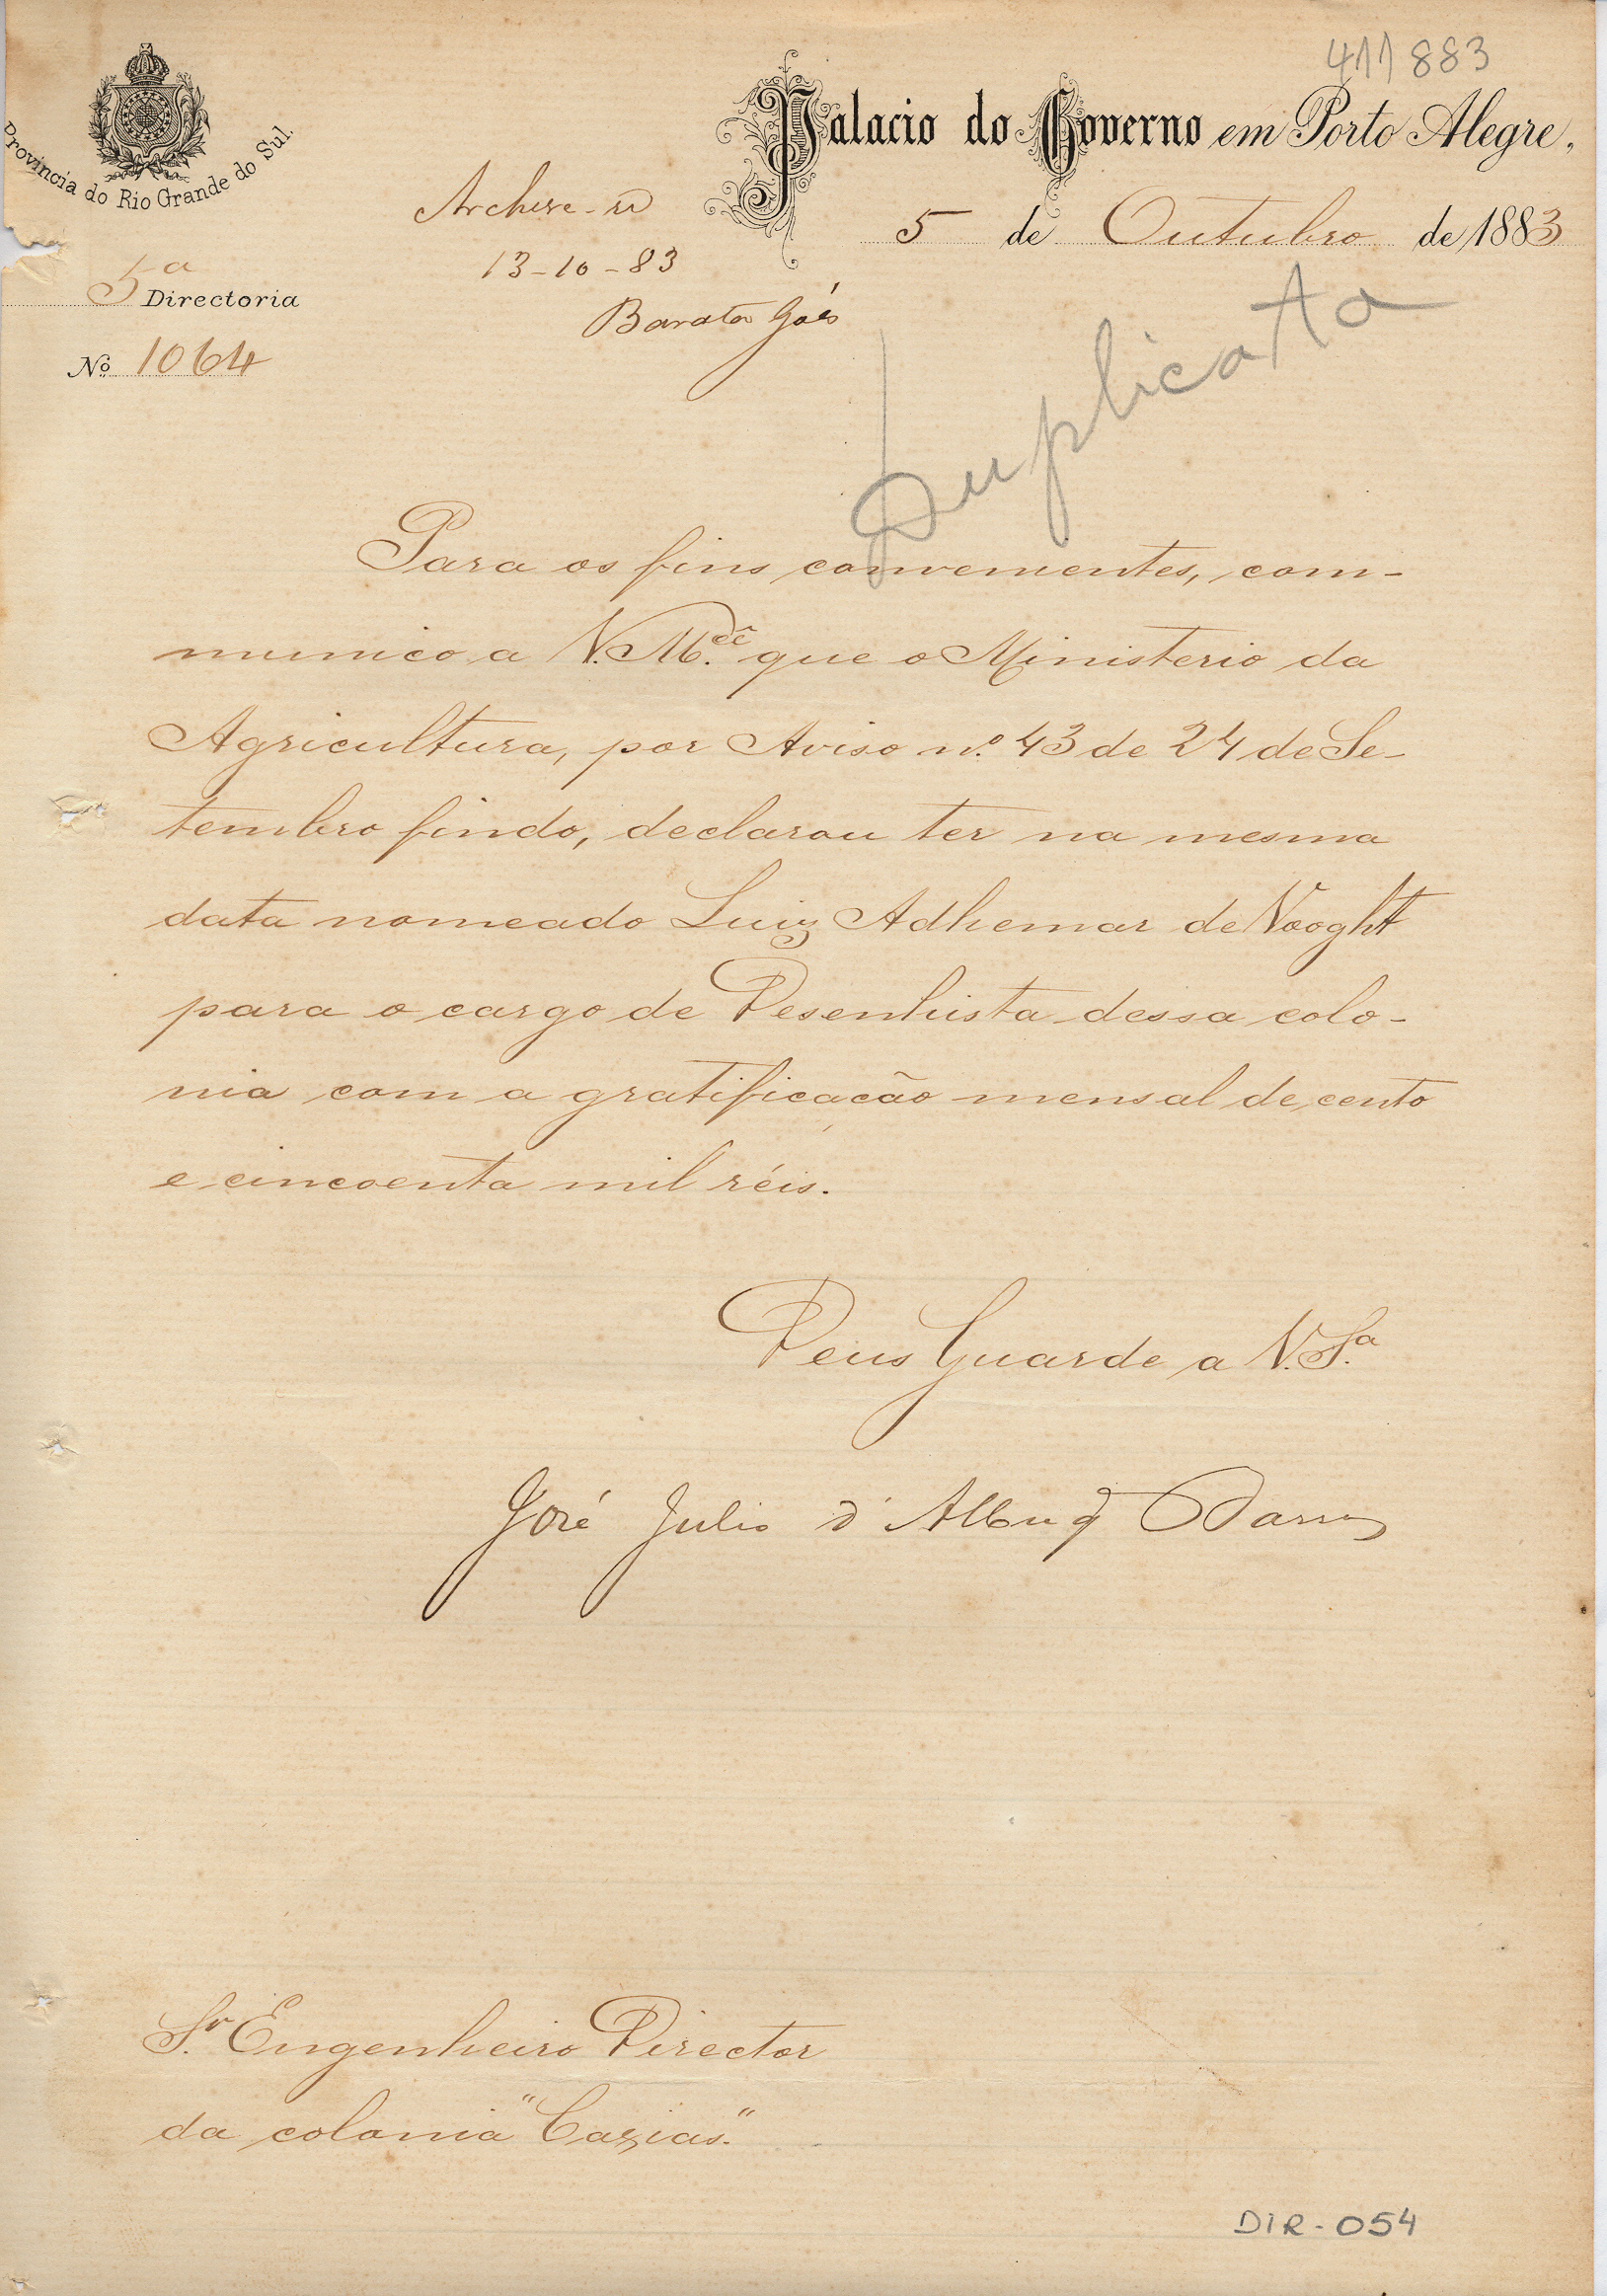 411883
Provincia do Rio Grande do Sul.
Palacio do Governo em Porto Alegre,
5 de Outubro de 1883
Archive-se
13-10-83
Barata Góes
5ª Directoria
Nº 1064
Duplicata
Para os fins convenientes, com-
munico a V. M.cê que o Ministerio da
Agricultura, por Aviso nº 43 de 24 de Se-
tembro findo, declarou ter na mesma
data nomeado Luiz Adhemar de Vooght
para o cargo de Desenhista dessa colo-
nia com a gratificação mensal de cento
e cincoenta mil réis.
Deus Guarde a V. S.ª
José Julio d'Albuq Barros
Sr. Engenheiro Director
da colonia "Caxias".
DIR-054